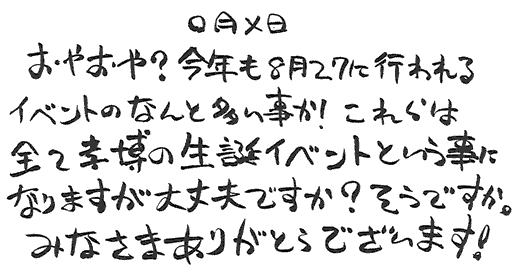 〇月×日
おやおや?今年も8月27に行われる
イベントのなんと多い事か!これらは
全て孝博の生誕イベントという事に
なりますが大丈夫ですか?そうですか。
みなさまありがとうございます!